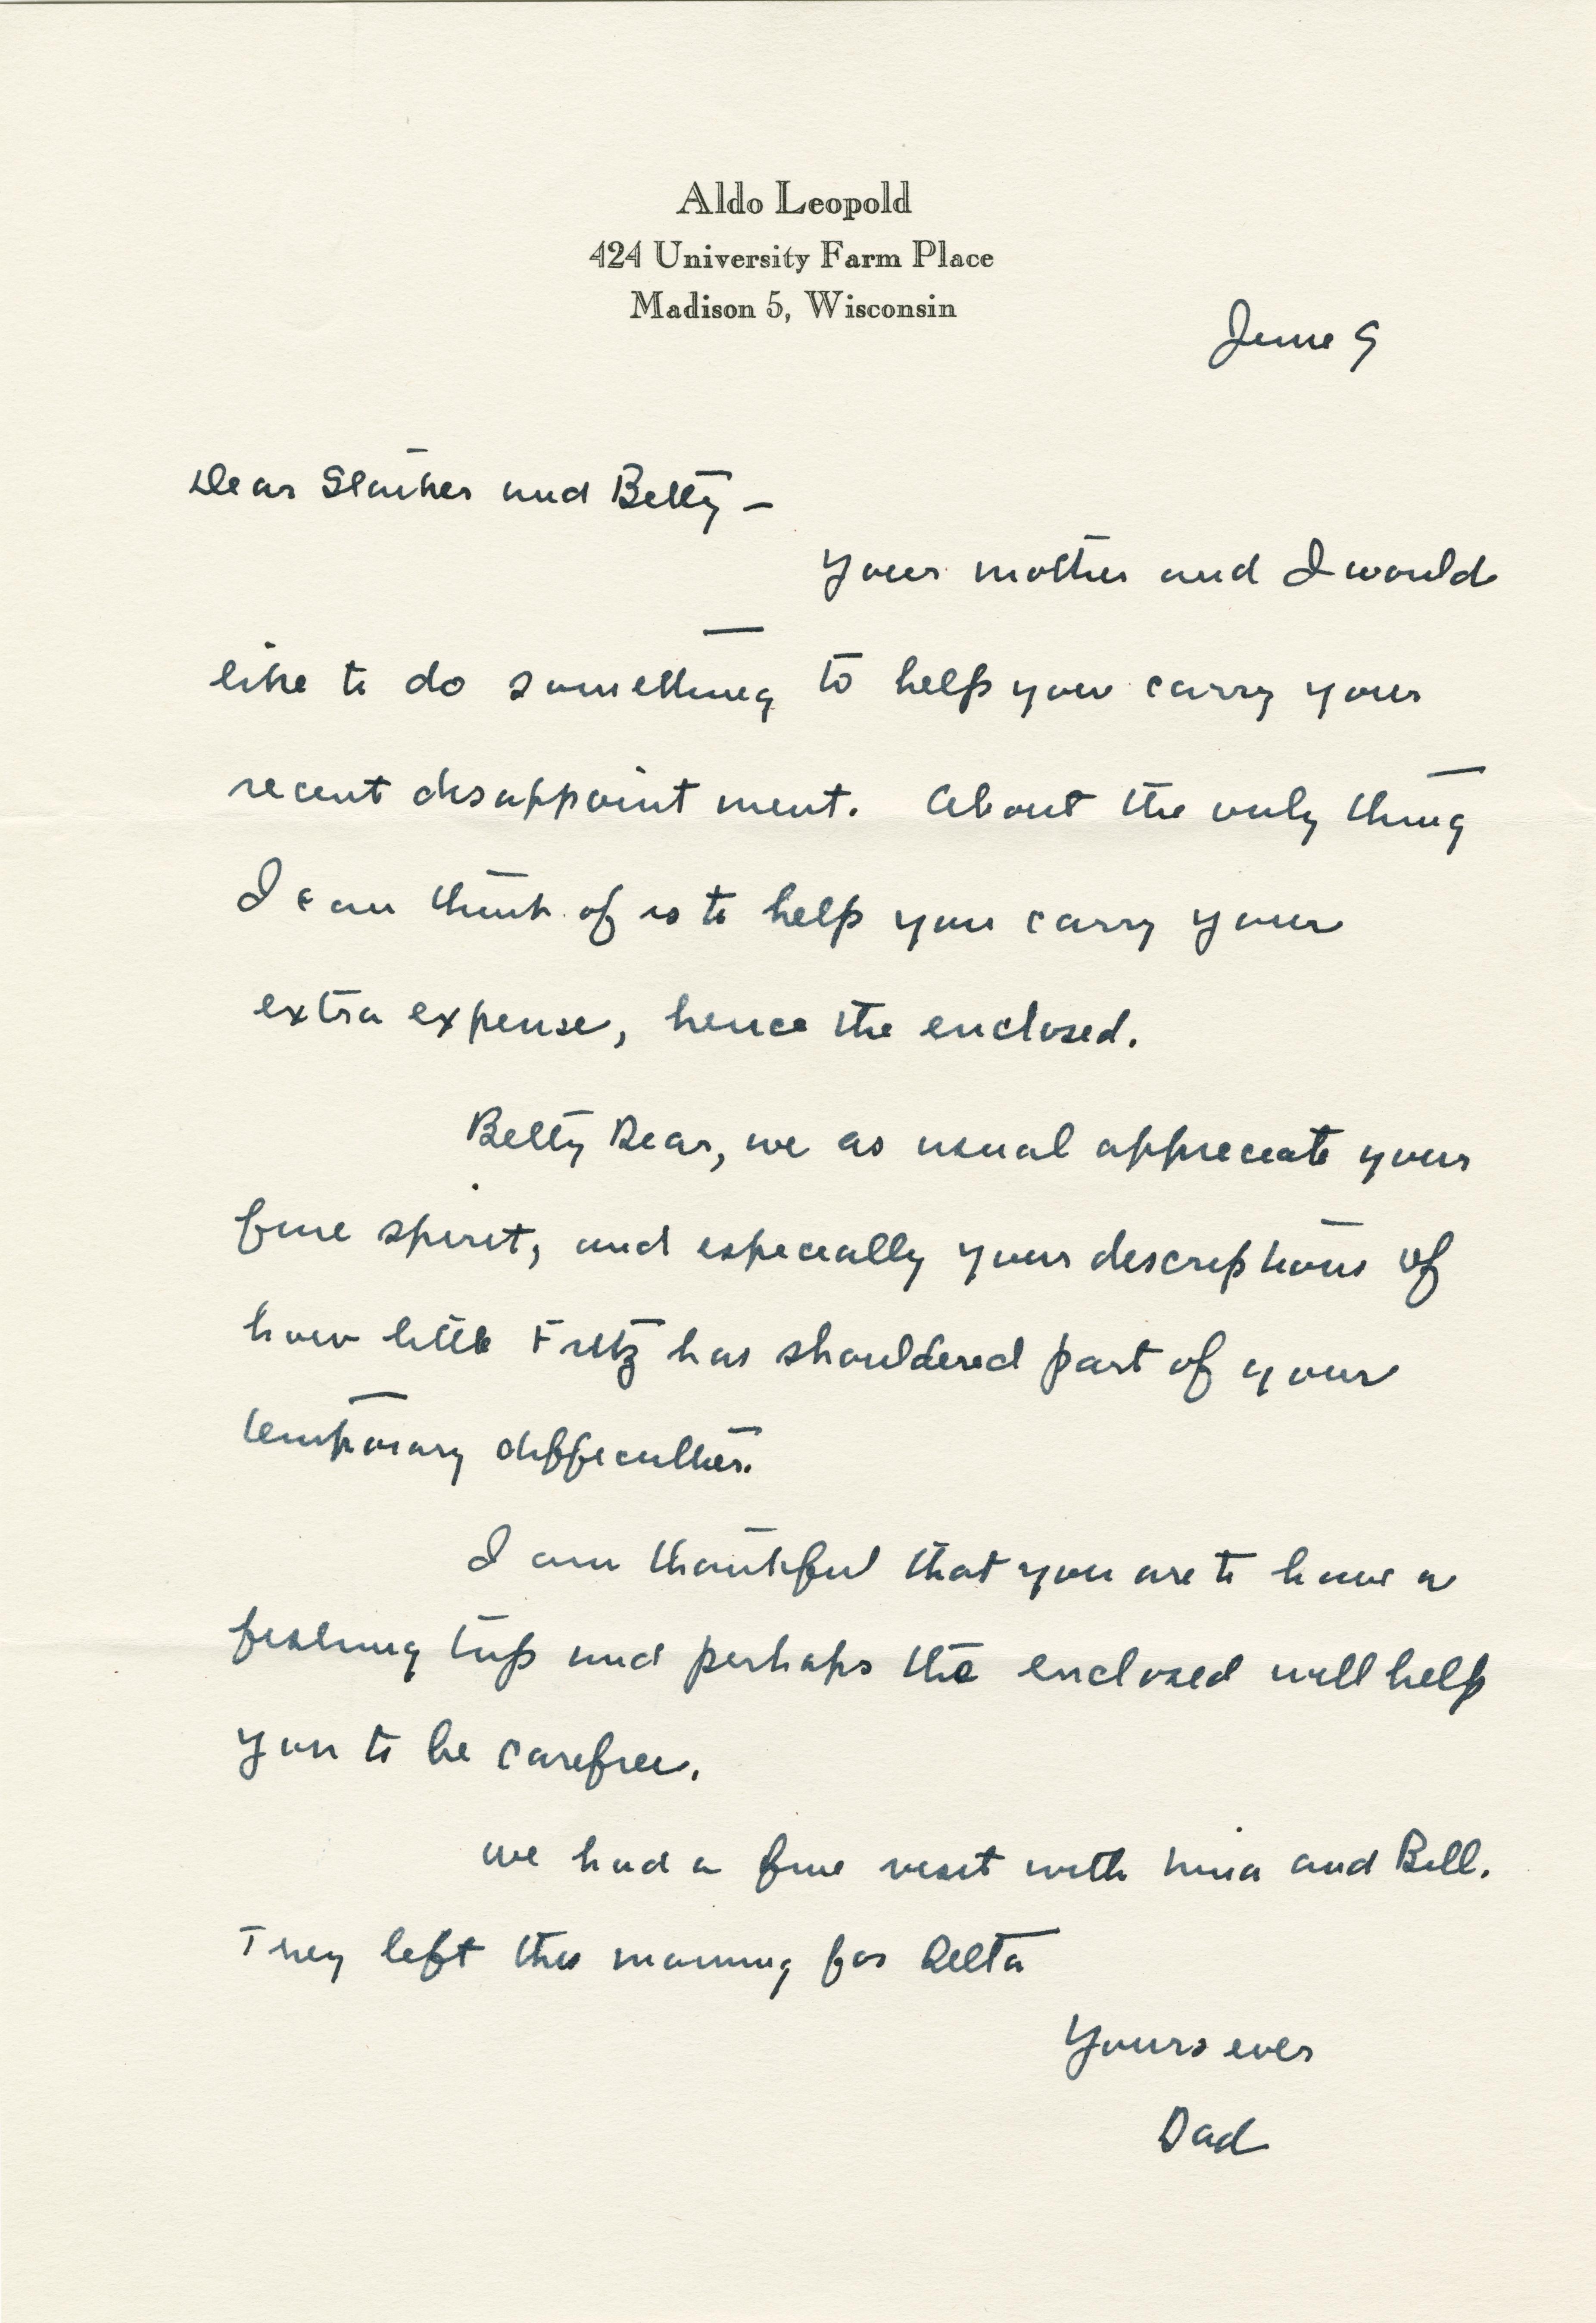 Aldo Leopold
424 University Farm Place
Madison 5, Wisconsin
June 9
Dear Starker and Betty –
Your mother and I would
like to do something to help you carry your
recent disappointment. About the only thing
I can think of is to help you carry your
extra expense, hence the enclosed.
Betty Dear, we as usual appreciate your
fine spirit, and especially your descriptions of
how little Fritz has shouldered part of your
temporary difficulties.
I am thankful that you are to have a
fishing trip and perhaps the enclosed will help
you to be carefree.
We had a fine visit with Nina and Bill.
They left this morning for Delta
Yours ever
Dad